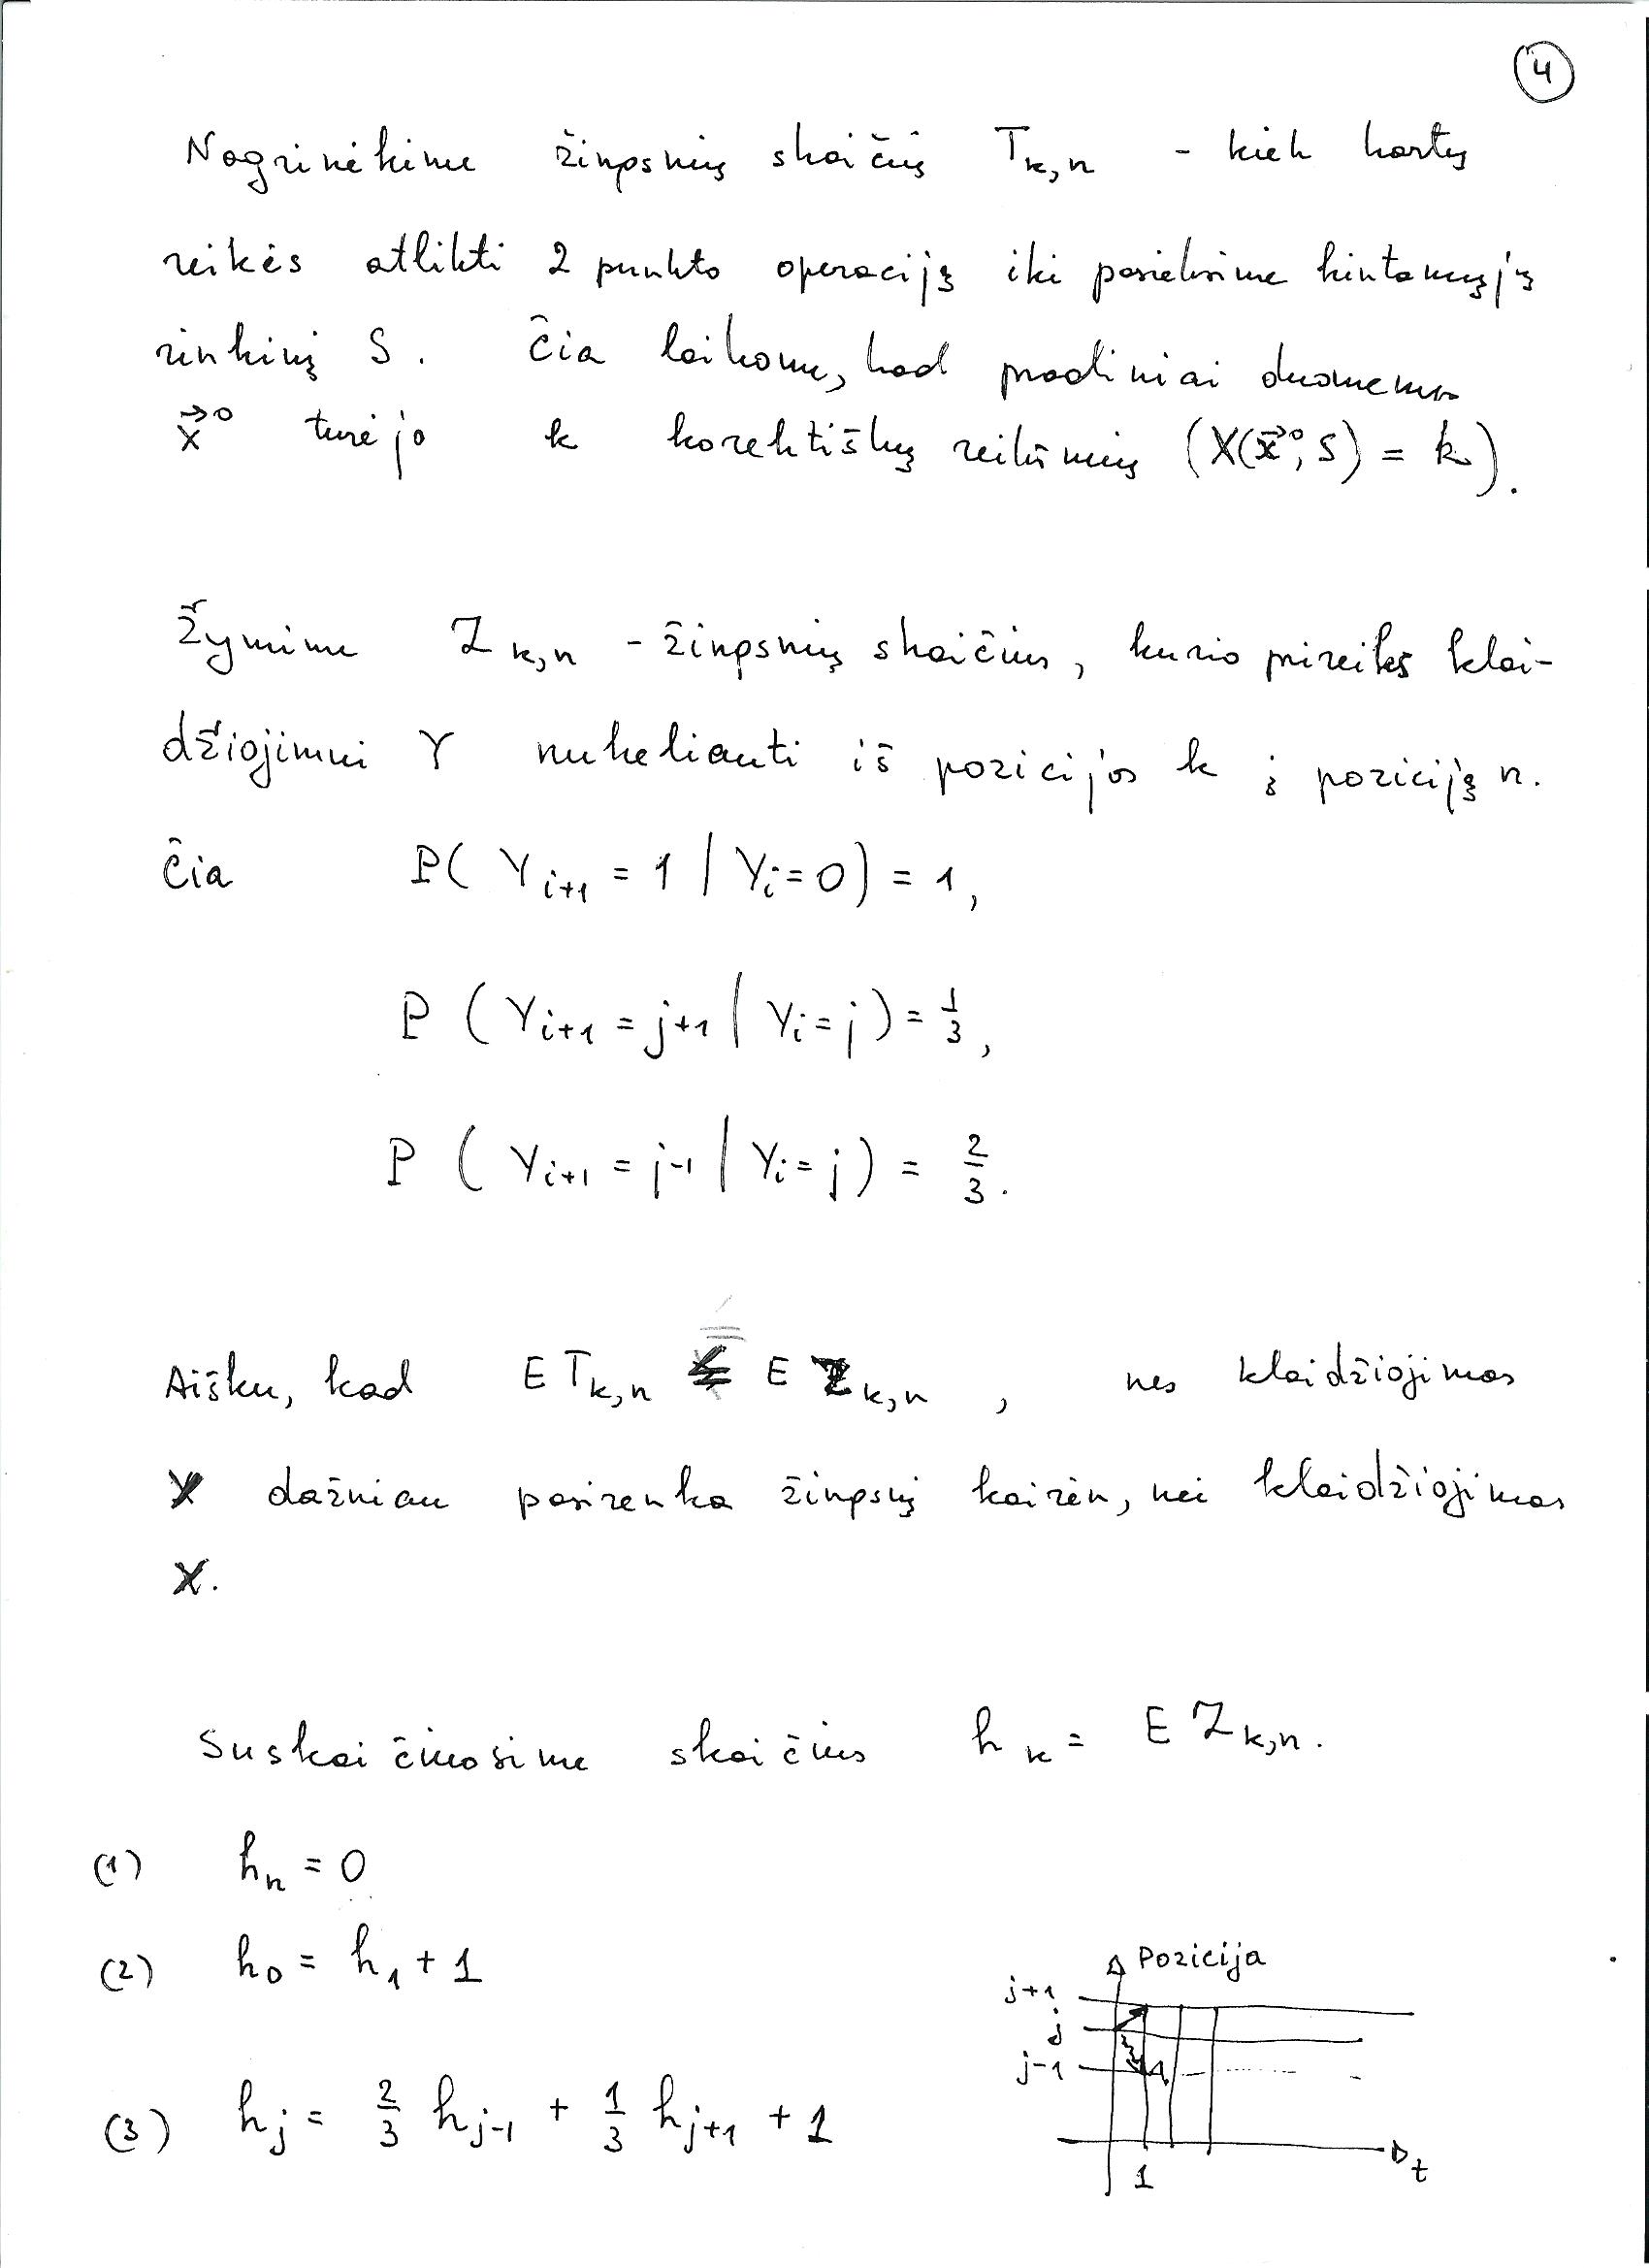 4
Nagrinėkime žingsnių skaičių T_{k,n} - kiek kartų
reikės atlikti 2 punkto operaciją iki pasieksime kintamųjų
rinkinį S. Čia laikome, kad pradiniai duomenys
\vec{x}^0 turėjo k korektiškų reikšmių (X(\vec{x}^0; S) = k).
Žymime Z_{k,n} - žingsnių skaičius, kurio prireiks klai-
džiojimui Y nukeliauti iš pozicijos k į poziciją n.
Čia P( Y_{i+1} = 1 | Y_i = 0) = 1,
P ( Y_{i+1} = j+1 | Y_i = j ) = 1/3,
P ( Y_{i+1} = j-1 | Y_i = j ) = 2/3.
Aišku, kad E T_{k,n} ≤ E Z_{k,n}, nes klaidžiojimas
Y dažniau pasirenka žingsnį kairėn, nei klaidžiojimas
X.
Suskaičiuosime skaičius h_k = E Z_{k,n}.
(1) h_n = 0
(2) h_0 = h_1 + 1
(3) h_j = 2/3 h_{j-1} + 1/3 h_{j+1} + 1
Pozicija
j+1
j
j-1
1
t